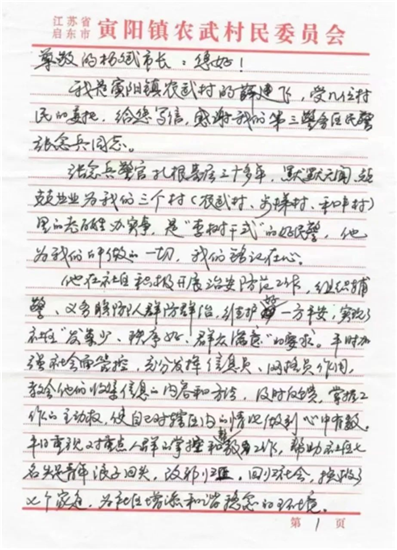 江苏省
启东市 寅阳镇农武村民委员会
尊敬的杨斌市长：您好！
我是寅阳镇农武村的薛建飞，受几位村
民的委托，给您写信，感谢我们第三警务区民警
张念兵同志。
张念兵警官扎根基层二十多年，默默无闻、兢
兢业业为我们三个村（农武村、步 村、 村）
里的老百姓办实事，是“李树干式”的好民警，他
为我们所做的一切，我们铭记在心。
他在社区积极开展治安防范工作，组织辅
警、义务联防队人群防群治，维护一方平安，实现了
社区“发案少、秩序好、群众满意”的要求。平时加
强社会面管控，充分发挥信息员、网格员作用，
教会他们收集信息的内容和方法，及时反馈，掌握工
作的主动权，使自己对辖区内的情况做到心中有数。
平时重视对重点人群的掌控和教育工作，帮助社区七
名失足青年浪子回头，改邪归正，回归社会，挽救了
七个家庭，为社区增添和谐稳定的环境。
第 1 页